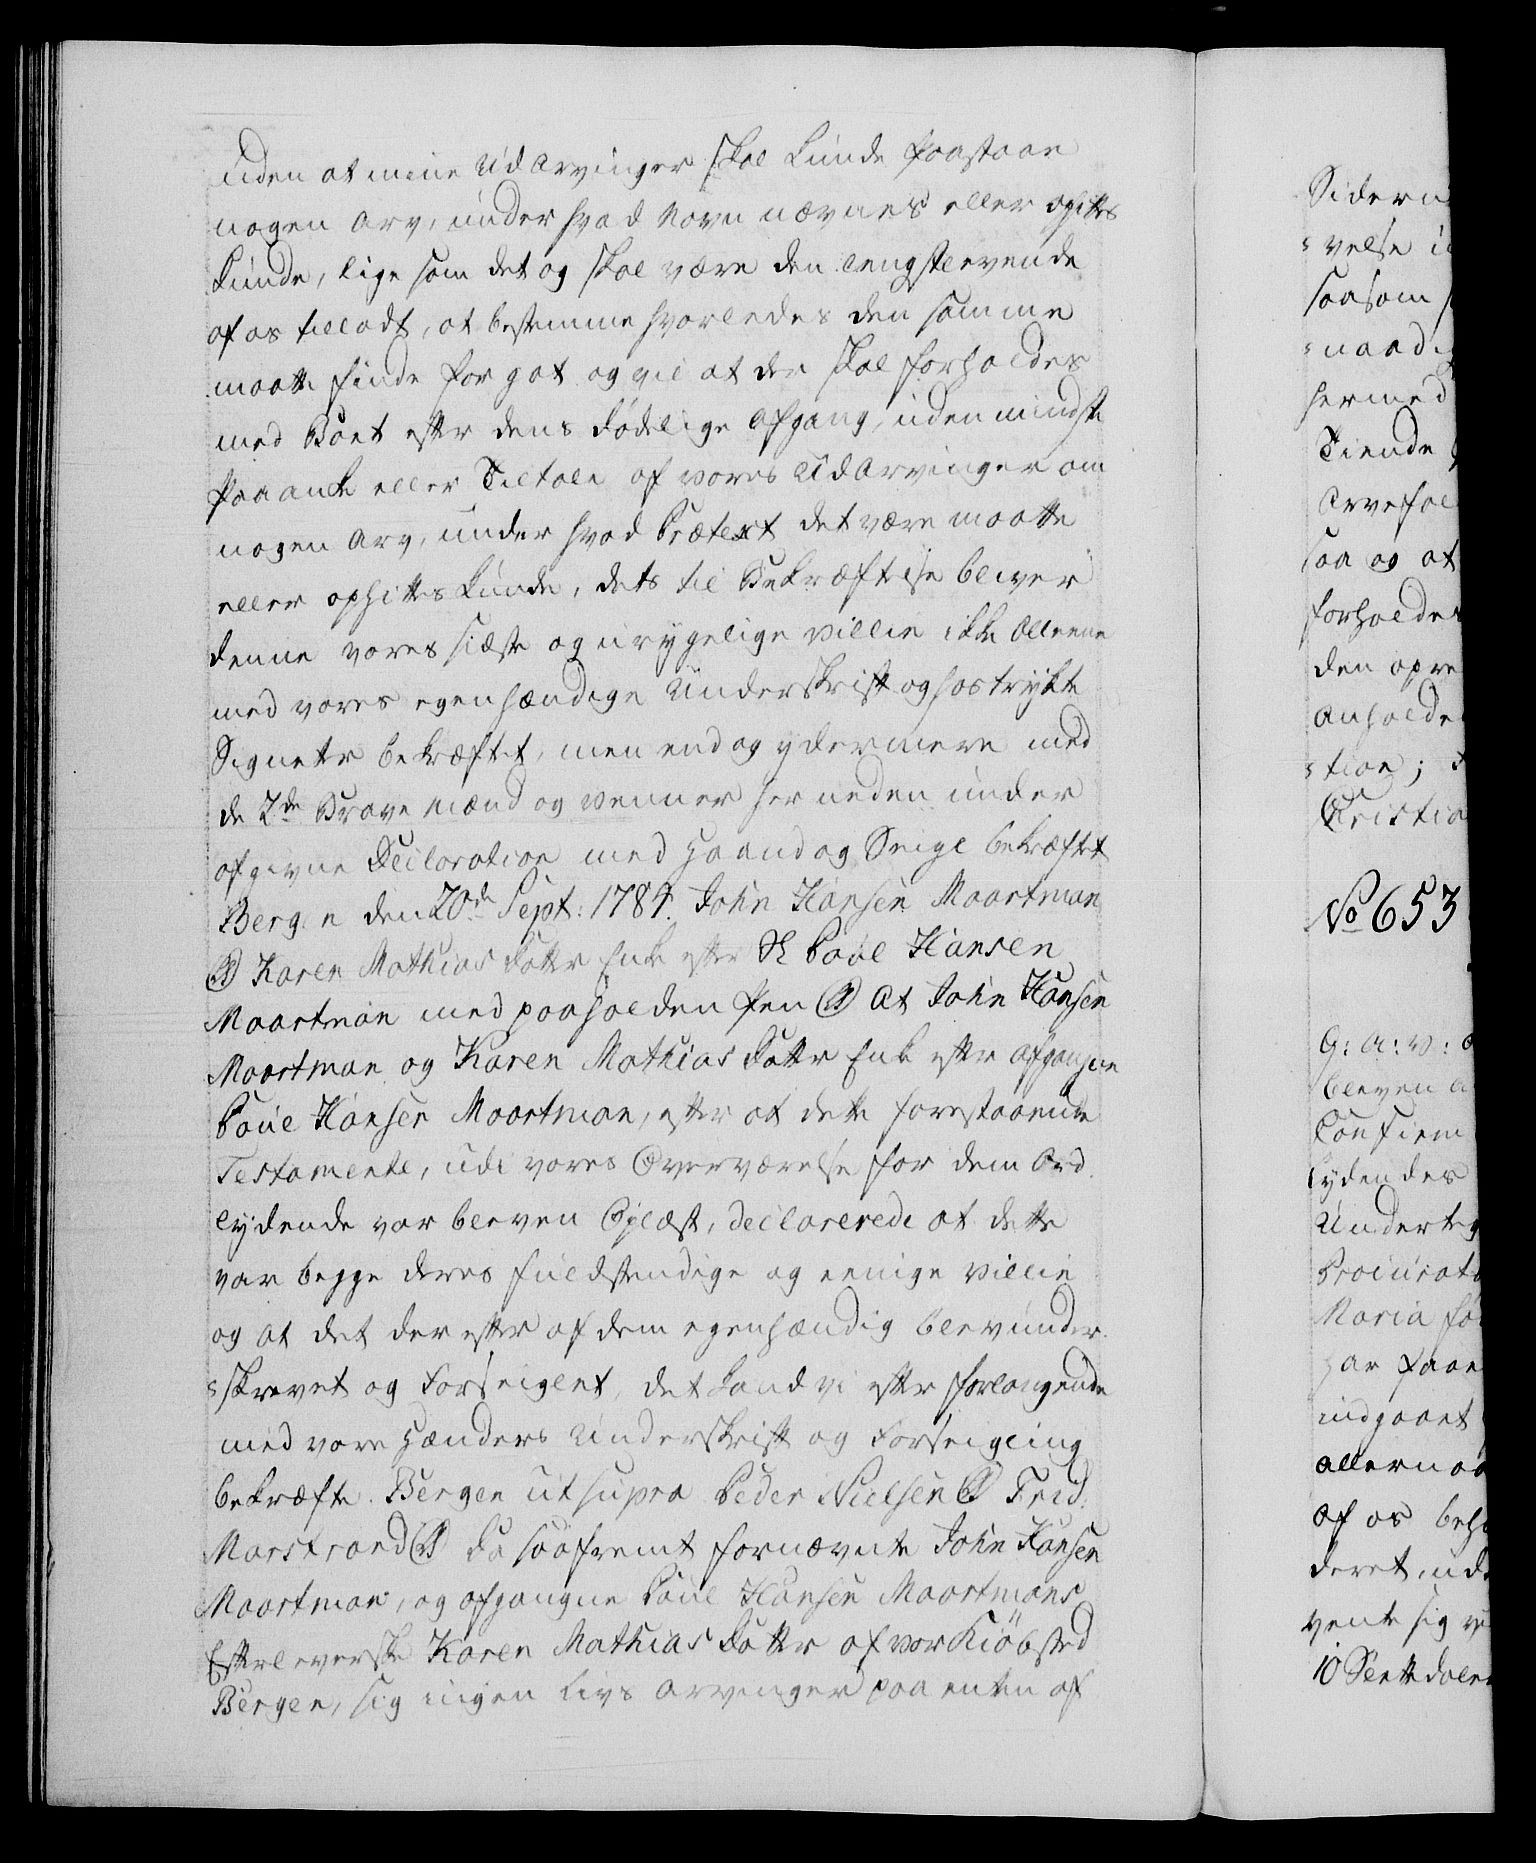 uden at mine Udarvinger skal kunde paastaae
nogen Arv, under hvad Navn nævnes eller ophittes
kunde, lige som det og skal være den længstlevende
af os tilladt, at bestemme hvorledes den samme
maatte finde for got og vil at der skal forholdes
med Boet efter dens dødelige Afgang, uden mindste
Paaanke eller Tiltale af vores Udarvinger om
nogen Arv, under hvad Prætext det være maatte
eller ophittes kunde, dets til Bekræftelse bliver
denne vores sidste og uryggelige Villie ikke alleene
med vores egenhændige Underskrift og hostrykte
Signeter bekræftet, men endog ydermere med
de 2de Brave Mænd og Venner her neden under
afgivne Declaration med Haand og Seigl bekræftet
Bergen den 20de Sept: 1784. John Hansen Maartman
(LS) Karen Mathias Datter Enke efter Sl Povel Hansen
Maartman med paaholden Pen (LS) At John Hansen
Maartman og Karen Mathias Datter Enke efter afgangne
Povel Hansen Maartman, efter at dette forestaaende
Testamente, udi vores Overværelse for dem Ord
lydende var bleven Oplæst, declarerede at dette
var begge deres fuldstændige og eenige Villie
og at det der efter af dem egenhændig blev under-
skrevet og Forseiglet, det kand vi efter forlangende
med vore Hænders Underskrift og Forseigling
bekræfte. Bergen ut supra Peder Nielsen (LS) Frid:
Marstrand (LS) Da saafremt fornævnte John Hansen
Maartman, og afgangne Povel Hansen Maartmans
Efterleverske Karen Mathias Datter af vor Kiøbsted
Bergen, sig ingen Livs Arvinger paa enten af
velse
saasom
naadig
hermed
Tiende
saa og at
den
tion;
No 653
G: A: V:
bleven
lydendes
Maria
har
indgaaet
af os
10